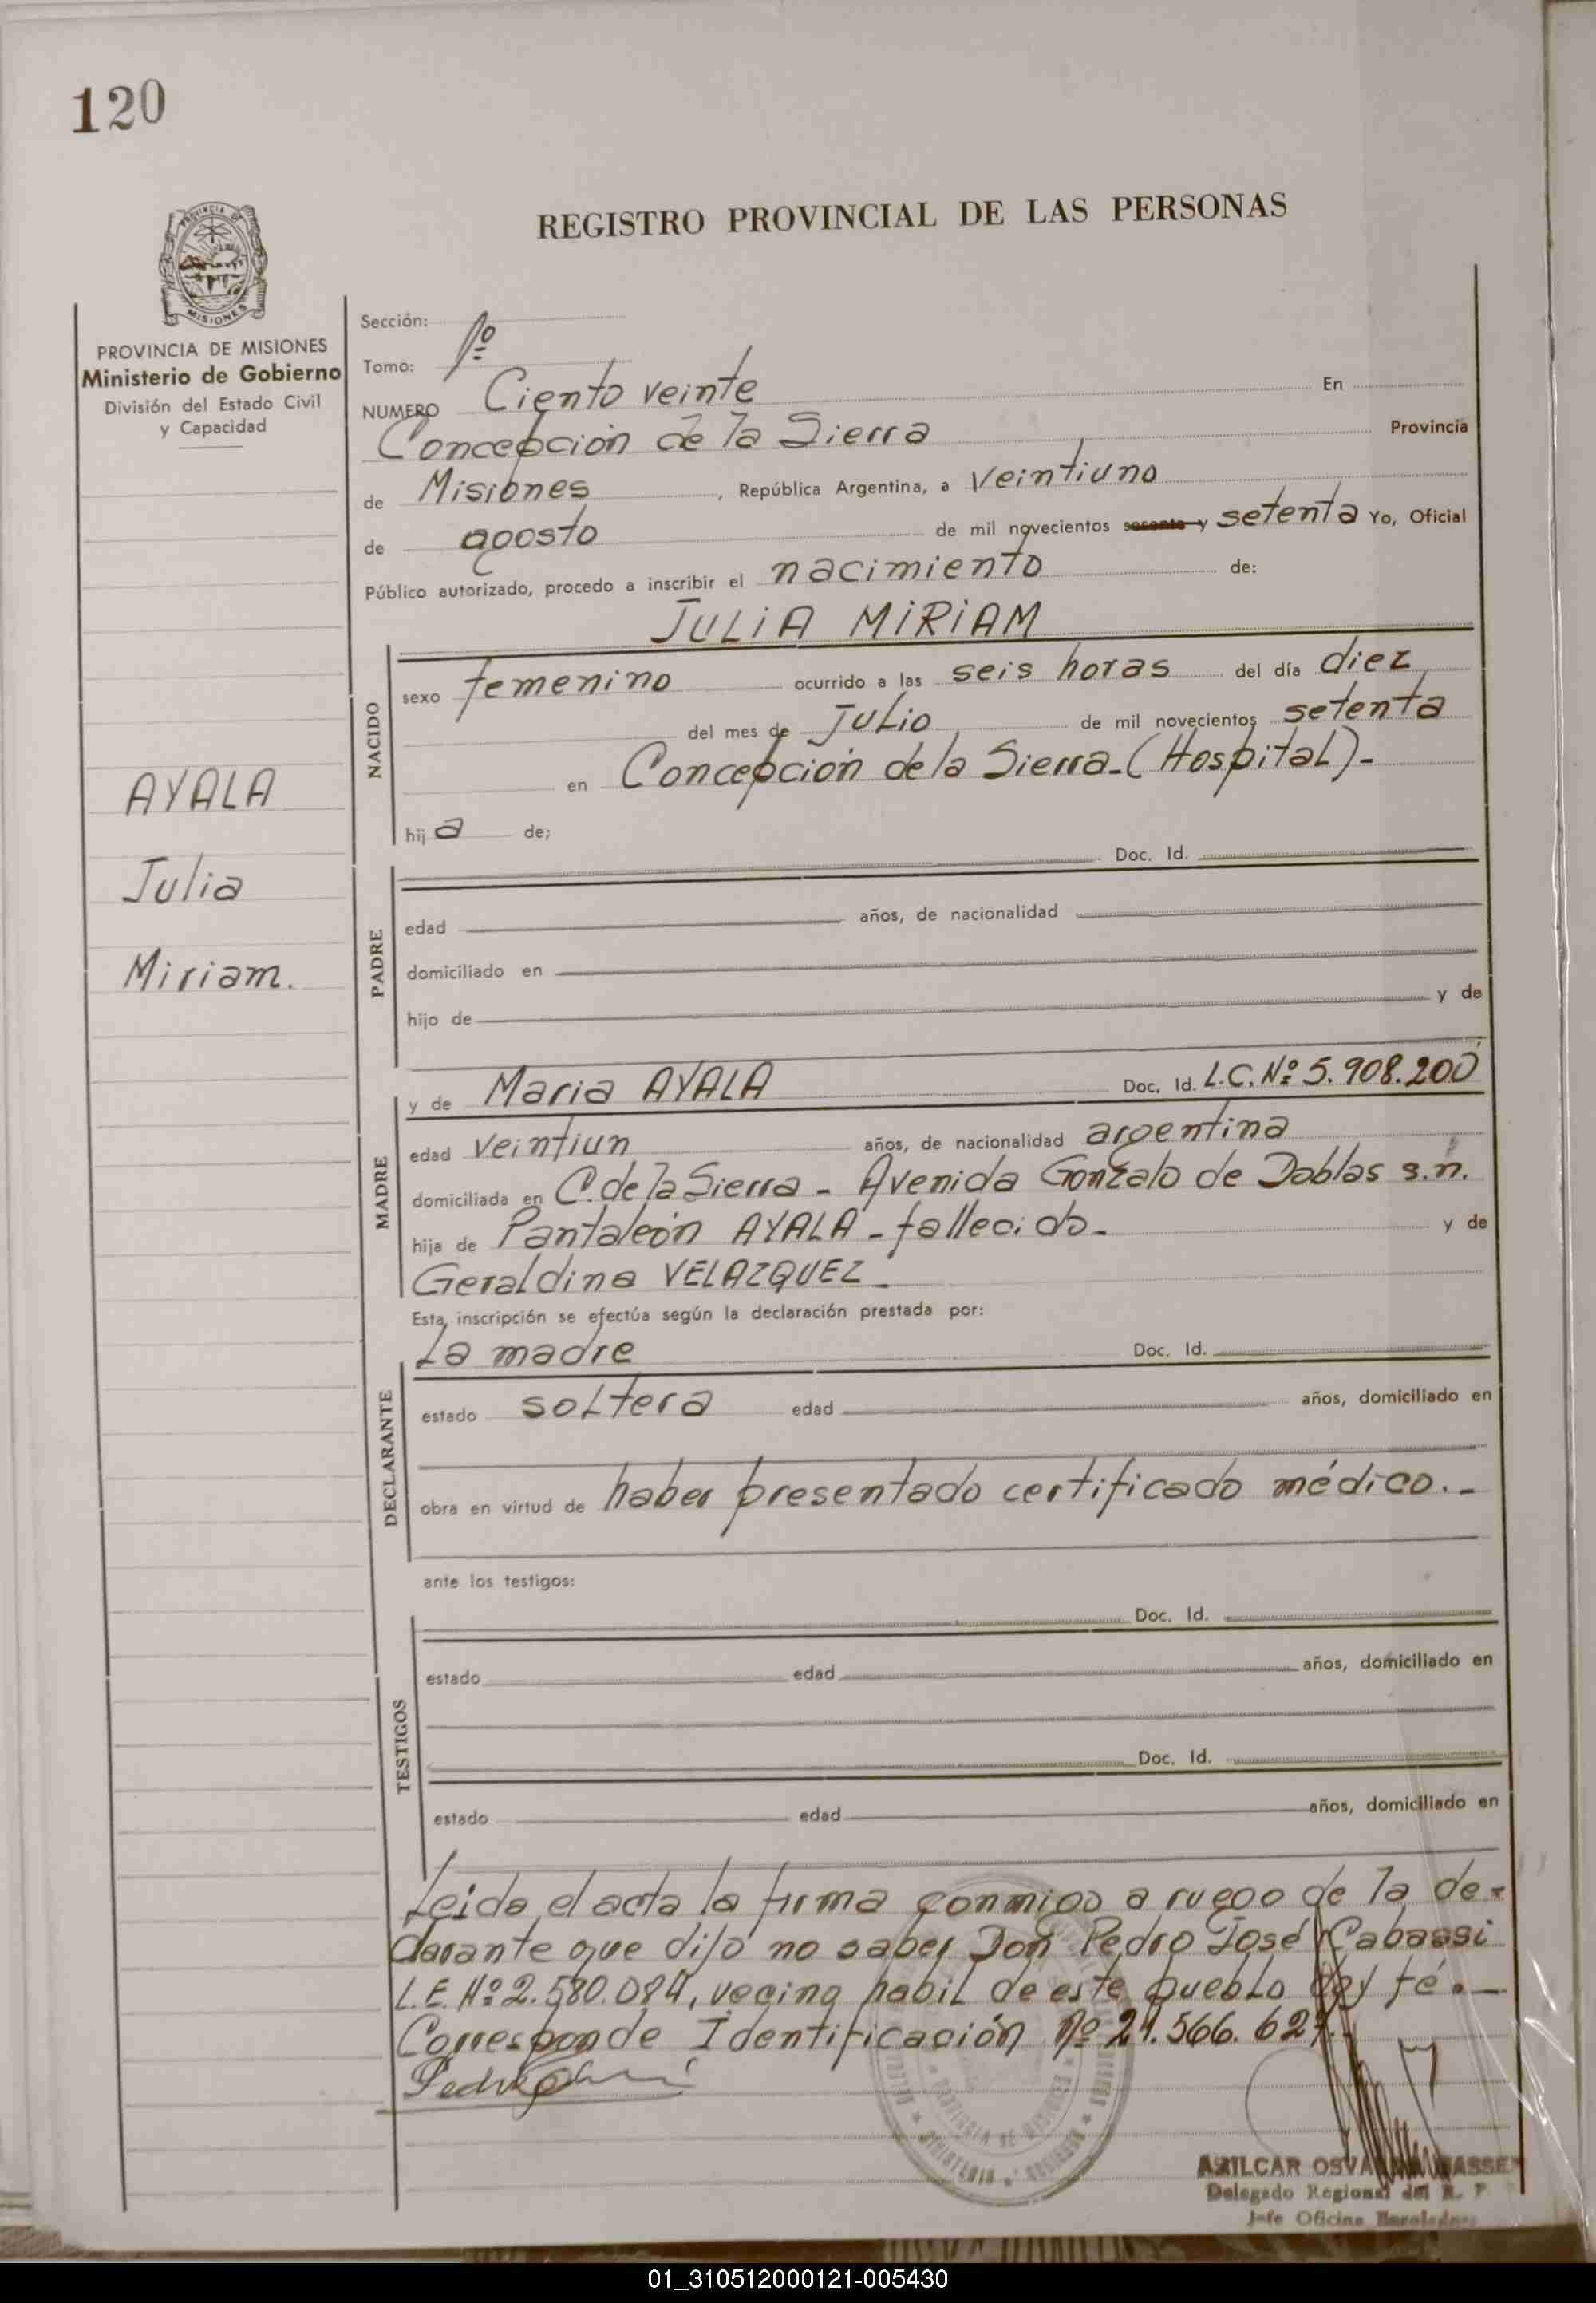 120
REGISTRO PROVINCIAL DE LAS PERSONAS
PROVINCIA DE
MISIONES
PROVINCIA DE MISIONES
Ministerio de Gobierno
División del Estado Civil
y Capacidad
AYALA
Julia
Miriam.
Sección:
Tomo: 1º
NUMERO Ciento veinte En
Concepción de la Sierra Provincia
de Misiones, República Argentina, a veintiuno
de agosto de mil novecientos sesenta y setenta Yo, Oficial
Público autorizado, procedo a inscribir el nacimiento de:
JULIA MIRIAM
NACIDO
sexo femenino ocurrido a las seis horas del día diez
del mes de Julio de mil novecientos setenta
en Concepción de la Sierra-(Hospital)-
hija de;
Doc. Id.
PADRE
edad años, de nacionalidad
domiciliado en
hijo de y de
MADRE
y de Maria AYALA Doc. Id. L.C.Nº 5.908.200
edad veintiun años, de nacionalidad argentina
domiciliada en C. de la Sierra - Avenida Gonzalo de Doblas s.n.
hija de Pantaleón AYALA - fallecido - y de
Geraldina VELAZQUEZ -
Esta inscripción se efectúa según la declaración prestada por:
DECLARANTE
La madre Doc. Id.
estado soltera edad años, domiciliado en
obra en virtud de haber presentado certificado médico.-
ante los testigos:
TESTIGOS
Doc. Id.
estado edad años, domiciliado en
Doc. Id.
estado edad años, domiciliado en
Leida el acta la firma conmigo a ruego de la de-
clarante que dijo no saber Don Pedro José Cabassi
L.E. Nº 2.580.084, vecino habil de este pueblo doy fé.-
Corresponde Identificación Nº 21.566.627.-
Delegado Regional del R. P
Jefe Oficina
01_310512000121-005430